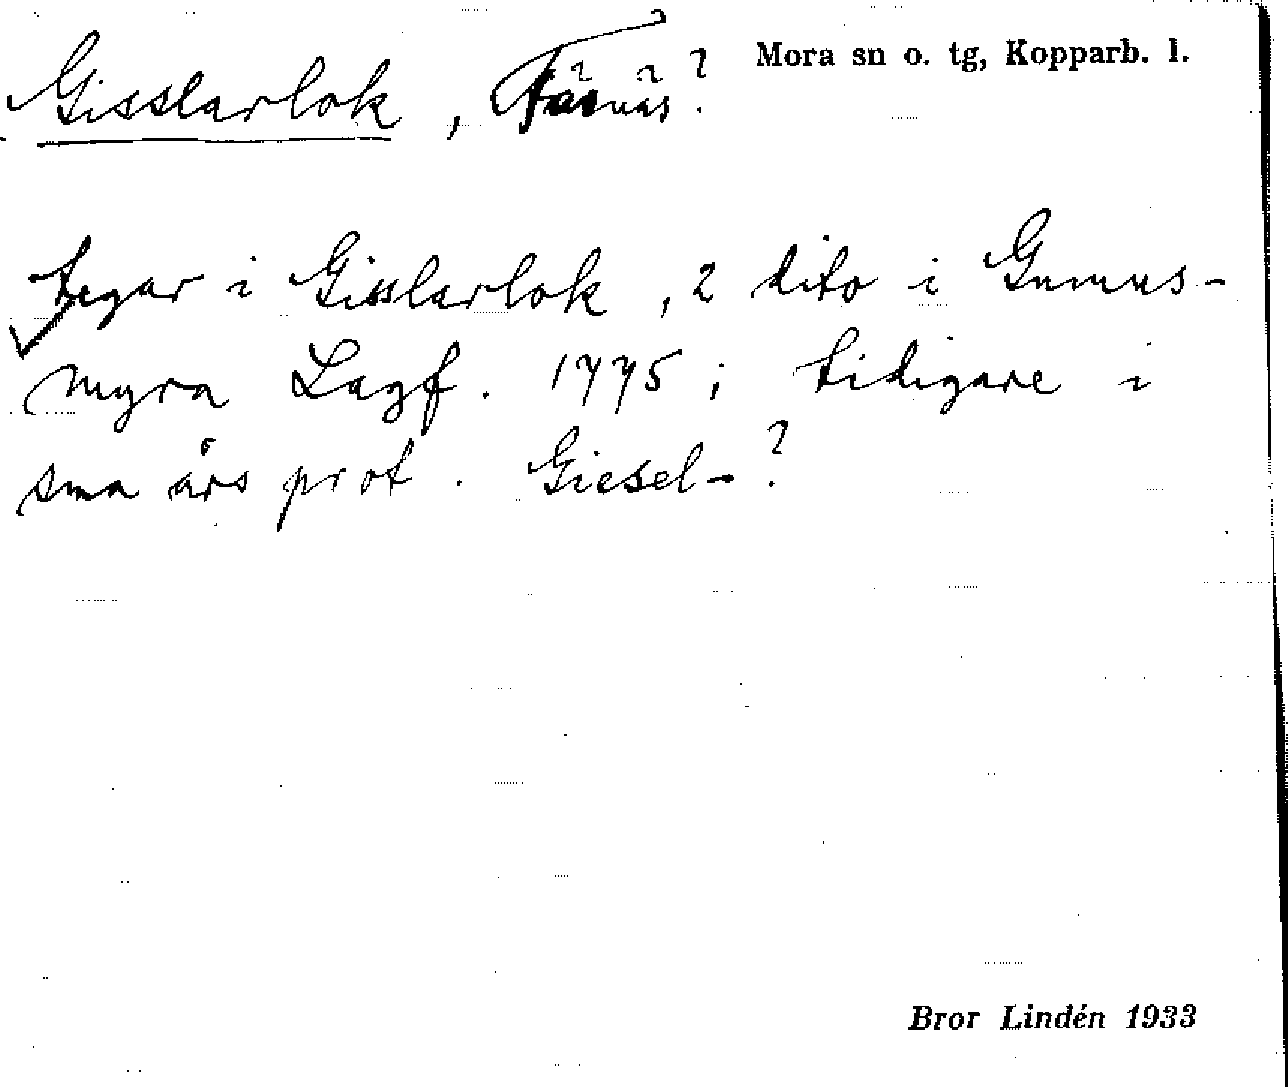 Gisslarlok, Färnäs? Mora sn o. tg, Kopparb. l.
tegar i Gisslarlok, 2 dito i Gumus-
myra Lagf. 1775; tidigare i
sma års prot. Giesel-?
Bror Lindén 1933